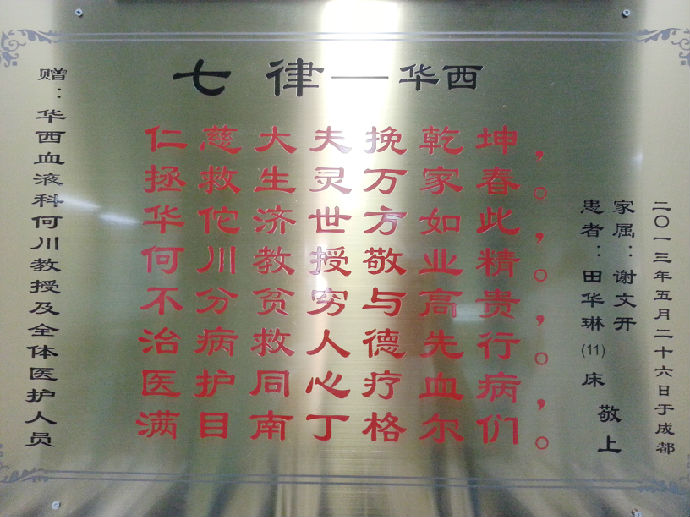 七律—华西
赠：华西血液科何川教授及全体医护人员
仁慈大夫挽乾坤，
拯救生灵万家春。
华佗济世方如此，
何川教授敬业精。
不分贫穷与高贵，
治病救人德先行。
医护同心疗血病，
满目南丁格尔们。
患者：田华琳(11)床
家属：谢文开
敬上
二〇一三年五月二十六日于成都